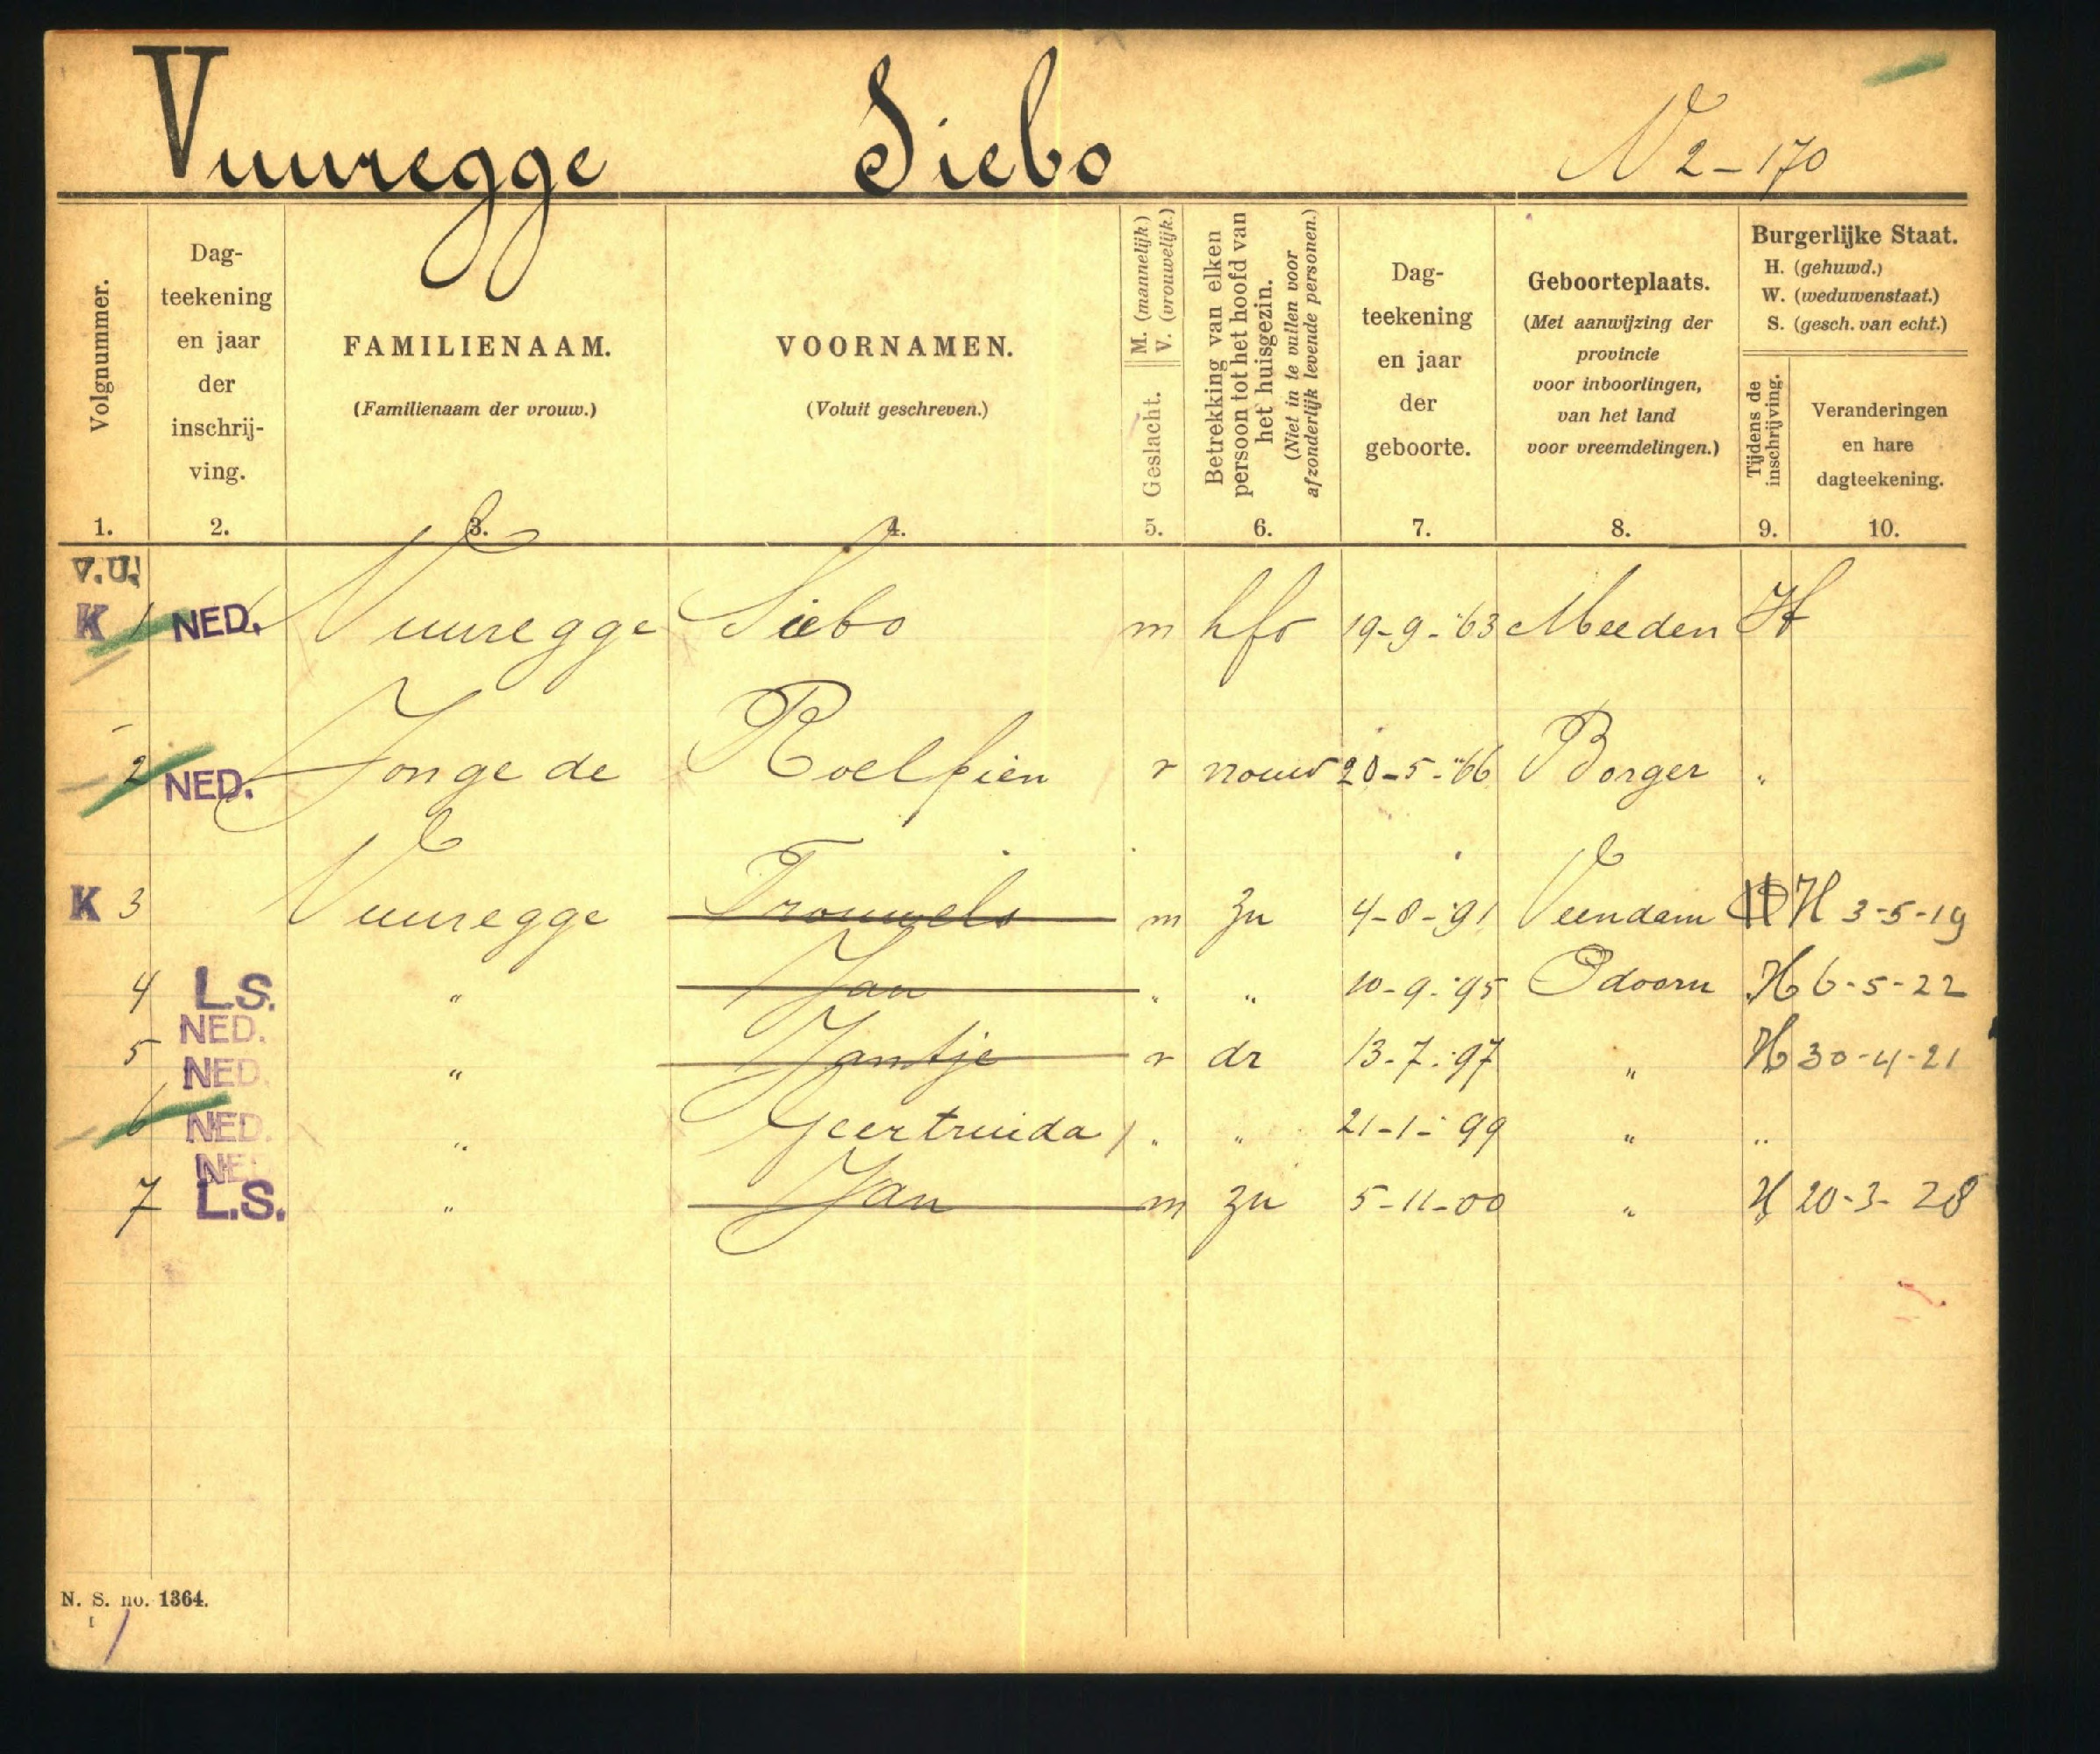 Vuuregge Siebo V 2-170
Volgnummer.
Dag-
teekening
en jaar
der
inschrij-
ving.
FAMILIENAAM.
(Familienaam der vrouw.)
VOORNAMEN.
(Voluit geschreven.)
Geslacht. M. (mannelijk) V. (vrouwelijk.)
Betrekking van elken
persoon tot het hoofd van
het huisgezin.
(Niet in te vullen voor
afzonderlijk levende personen.)
Dag-
teekening
en jaar
der
geboorte.
Geboorteplaats.
(Met aanwijzing der
provincie
voor inboorlingen,
van het land
voor vreemdelingen.)
Burgerlijke Staat.
H. (gehuwd.)
W. (weduwenstaat.)
S. (gesch. van echt.)
Tijdens de
inschrijving.
Veranderingen
en hare
dagteekening.
1. 2. 3. 4. 5. 6. 7. 8. 9. 10.
V.U.
K 1 NED. Vuuregge Siebo m hfd 19-9-'63 Meeden H
2 NED. Jonge de Roelfien v vrouw 20-5-'66 Borger "
K 3 Vuuregge Trouwels m zn 4-8-'91 Veendam H 3-5-19
4 L.S. " Jan " " 10-9-'95 Odoorn H 6-5-22
NED.
5 NED. " Jantje v dr 13-7-'97 " H 30-4-21
6 NED. " Geertruida " " 21-1-'99 " "
NED
7 L.S. " Jan m zn 5-11-00 " H 20-3-28
N. S. no. 1364.